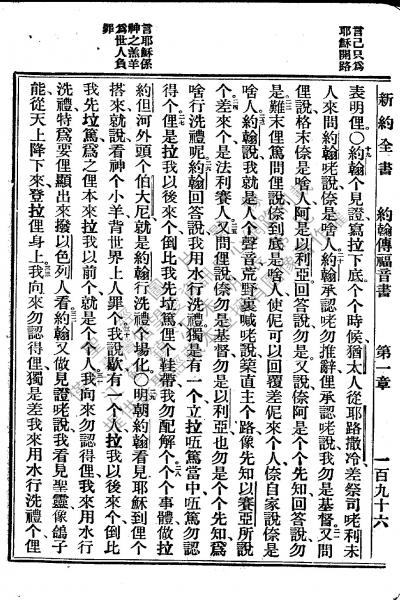 言己只爲
耶穌開路
言耶穌係
神之羔羊
爲世人負
罪
新約全書 約翰傳福音書 第一章 一百九十六
表明俚。○十九約翰个見證寫拉下底。个个時候猶太人從耶路撒冷差祭司咾利未
人來問約翰咾說倷是啥人。二十約翰承認咾勿推辭俚承認咾說我勿是基督。二一又問
俚說格末倷是啥人阿是以利亞回答說勿是又說倷阿是个个先知回答說勿
是。二二難末俚篤問俚說倷到底是啥人、使伲可以回覆差伲來个人倷自家說倷是
啥人。二三約翰說我就是人个聲音荒野裏喊咾說築直主个路像先知以賽亞所說
个。二四差來个是法利賽人。二五又問俚說倷勿是基督勿是以利亞也勿是个个先知爲
啥行洗禮呢。二六約翰回答說我用水行洗禮獨是有一个立拉唔篤當中唔篤勿認
得个。二七俚是拉我以後來个倒比我先垃篤俚个鞋帶我勿配解个。二八个个事體做拉
約但河外頭个伯大尼就是約翰行洗禮个場化。○二九明朝約翰看見耶穌到俚个
搭來就說看神个小羊背世界上人罪个。三十我說歇有一个人拉我以後來个倒比
我先垃篤爲之俚本來拉我以前个就是个个人。三一我向來勿認得俚我來用水行
洗禮特爲要俚顯出來撥以色列人看。三二約翰又做見證咾說我看見聖靈像鴿子
能從天上降下來登拉俚身上。三三我向來勿認得俚獨是差我來用水行洗禮个俚